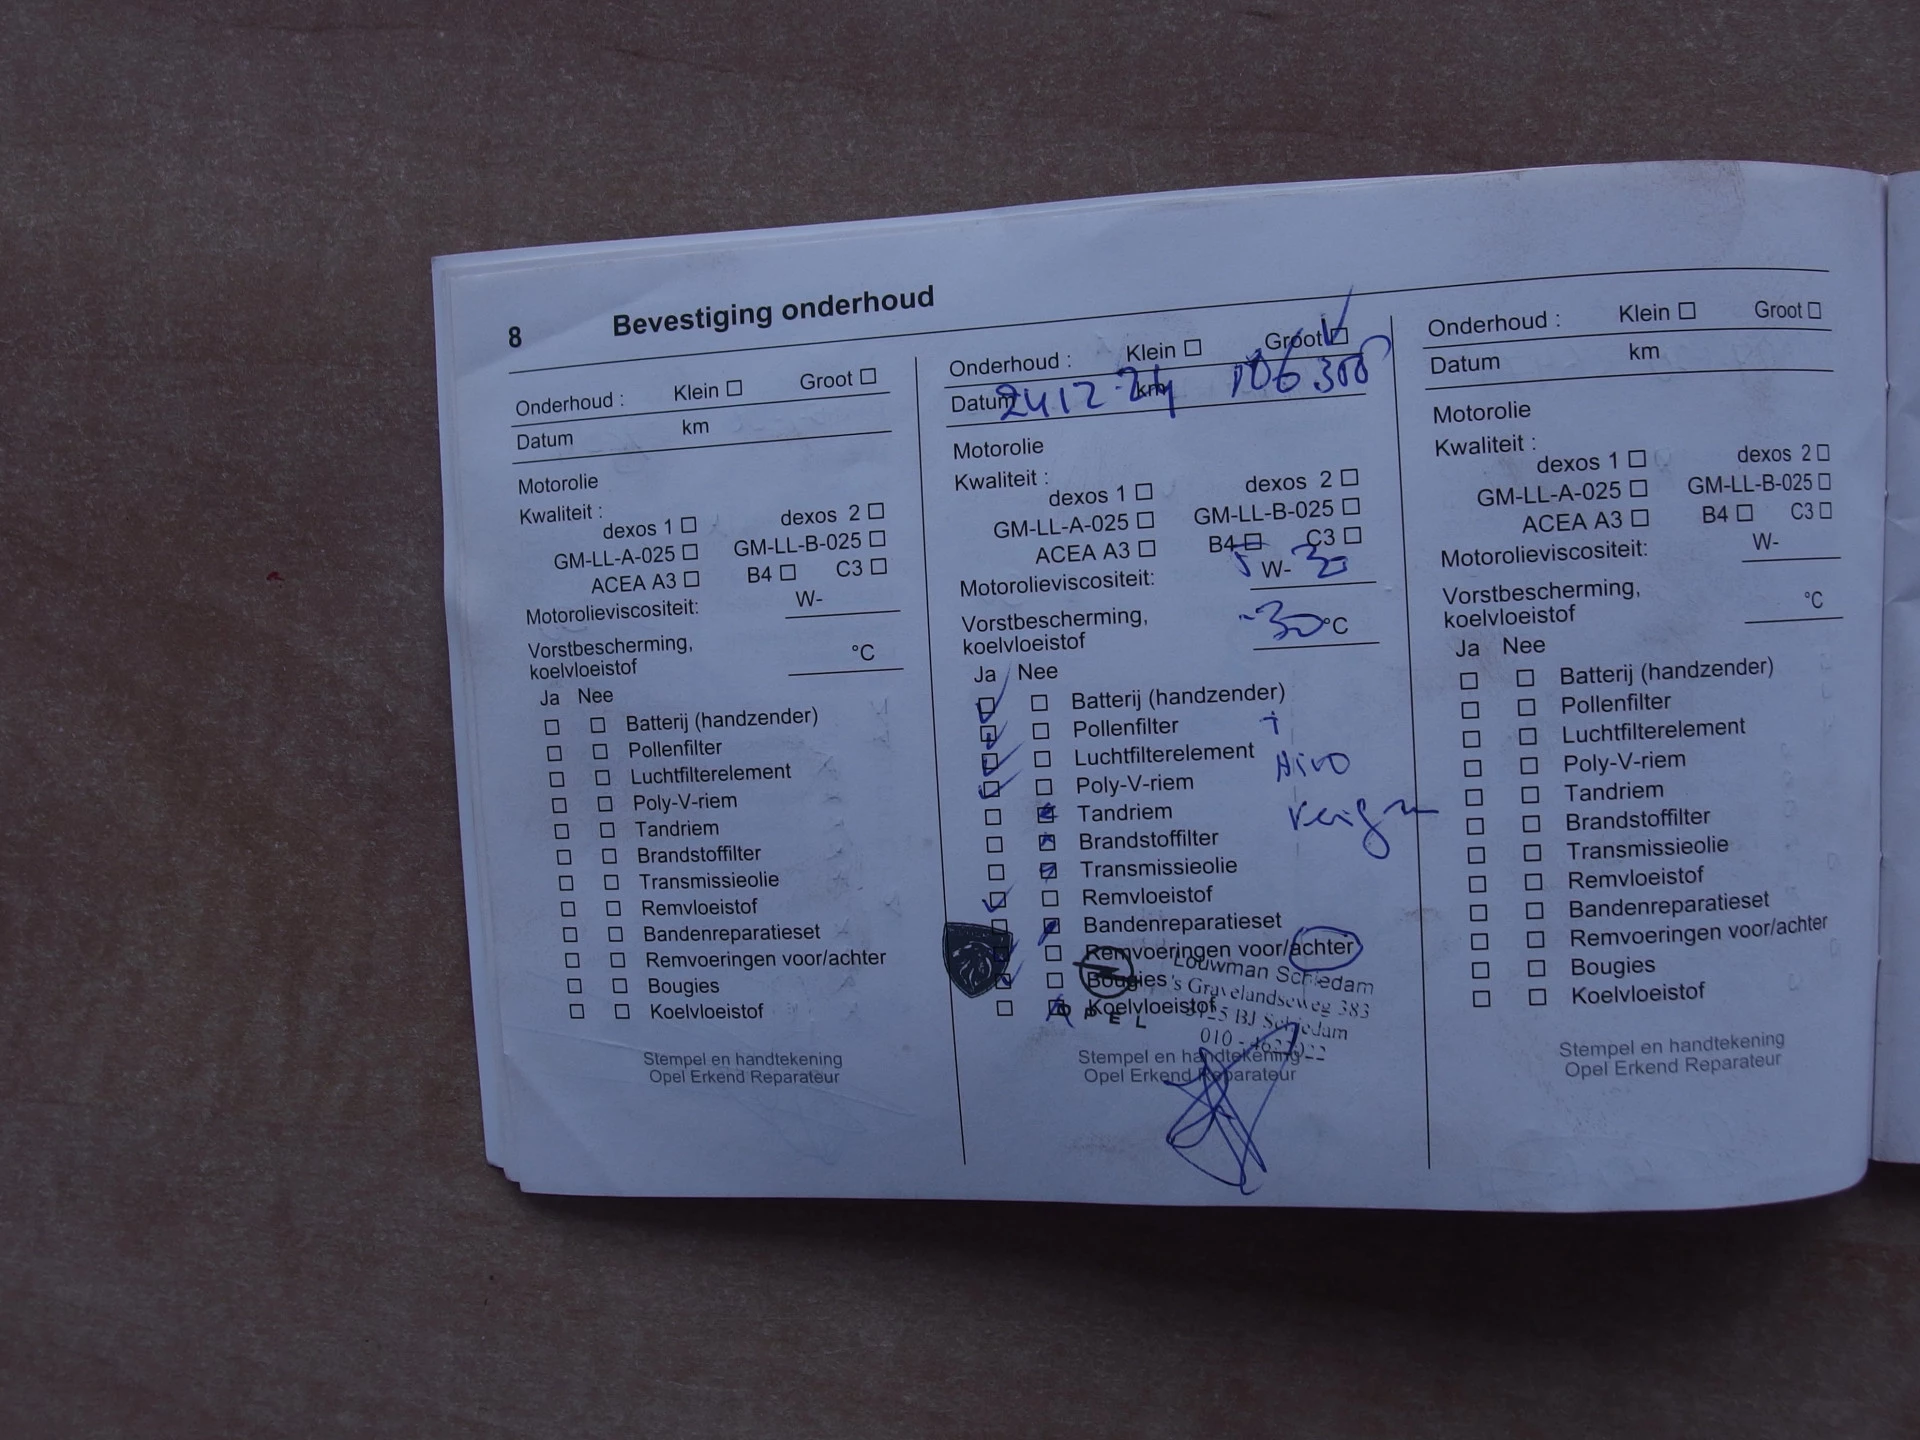 8 Bevestiging onderhoud
Onderhoud : Klein Groot
Datum km
Motorolie
Kwaliteit :
dexos 1 dexos 2
GM-LL-A-025 GM-LL-B-025
ACEA A3 B4 C3
Motorolieviscositeit: W-
Vorstbescherming,
koelvloeistof °C
Ja Nee
Batterij (handzender)
Pollenfilter
Luchtfilterelement
Poly-V-riem
Tandriem
Brandstoffilter
Transmissieolie
Remvloeistof
Bandenreparatieset
Remvoeringen voor/achter
Bougies
Koelvloeistof
Stempel en handtekening
Opel Erkend Reparateur
Onderhoud : Klein Groot
Datum 24 12-24 km 106 300
Motorolie
Kwaliteit :
dexos 1 dexos 2
GM-LL-A-025 GM-LL-B-025
ACEA A3 B4 C3
Motorolieviscositeit: 5 W- 30
Vorstbescherming,
koelvloeistof -30 °C
Ja Nee
Batterij (handzender)
Pollenfilter +
Luchtfilterelement Airo
Poly-V-riem
Tandriem
Brandstoffilter
Transmissieolie
Remvloeistof
Bandenreparatieset
Remvoeringen voor/achter
Bougies
Koelvloeistof
OPEL
Louwman Schiedam
's Gravelandseweg 383
3125 BJ Schiedam
Stempel en handtekening
Opel Erkend Reparateur
Onderhoud : Klein Groot
Datum km
Motorolie
Kwaliteit :
dexos 1 dexos 2
GM-LL-A-025 GM-LL-B-025
ACEA A3 B4 C3
Motorolieviscositeit: W-
Vorstbescherming,
koelvloeistof °C
Ja Nee
Batterij (handzender)
Pollenfilter
Luchtfilterelement
Poly-V-riem
Tandriem
Brandstoffilter
Transmissieolie
Remvloeistof
Bandenreparatieset
Remvoeringen voor/achter
Bougies
Koelvloeistof
Stempel en handtekening
Opel Erkend Reparateur